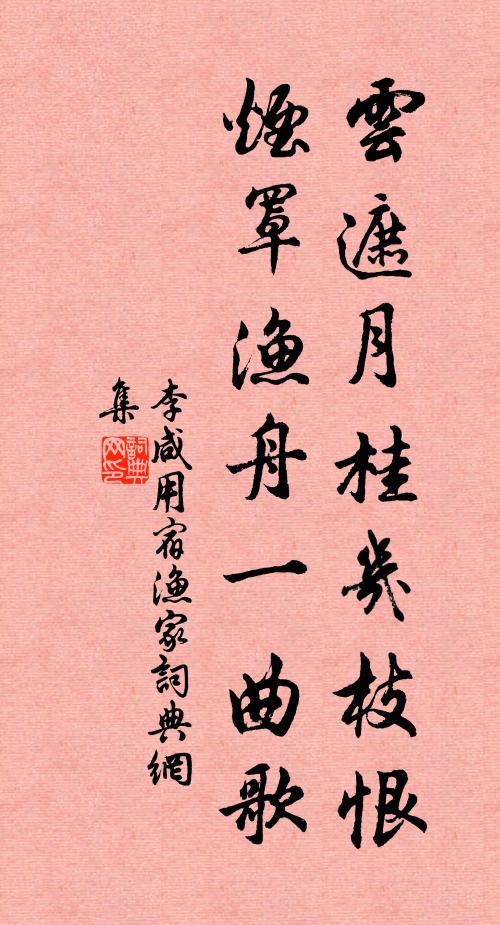 雲遮月桂幾枝恨
煙罩漁舟一曲歌
李咸用宿漁家詞典網
集
詞典
网印